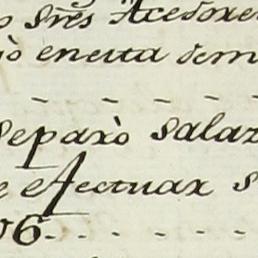 o Sres Acedore
io en esta dem
separò salaz
e efectuar s
06